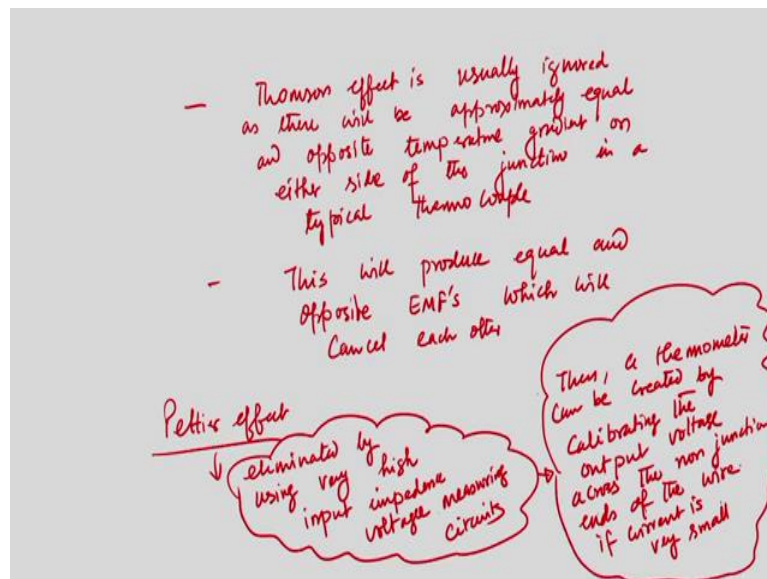 - Thomson effect is usually ignored
as there will be approximately equal
and opposite temperature gradient on
either side of the junction in a
typical thermo couple
- This will produce equal and
opposite EMF's which will
Cancel each other
Peltier effect
eliminated by
using very high
input impedence
voltage measuring
circuits
Then, a thermometer
can be created by
Calibrating the
output voltage
across the non junction
ends of the wire
if current is
very small